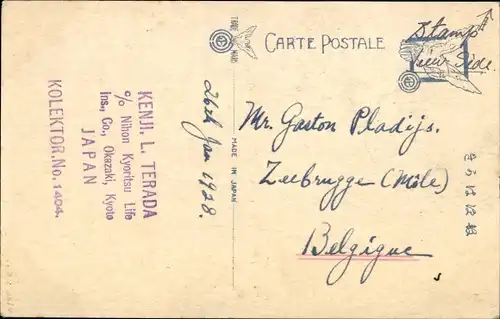 TRADE MARK
CARTE POSTALE
Stamp
View Side.
KENJI. L. TERADA
℅ Nihon Kyoritsu Life
ins., Co., Okazaki, Kyoto
JAPAN
KOLEKTOR. No. 1404.
26th Jan 1928.
MADE IN JAPAN
Mr. Gaston Pladijs.
Zeebrugge (Môle)
Belgique
きがは便郵